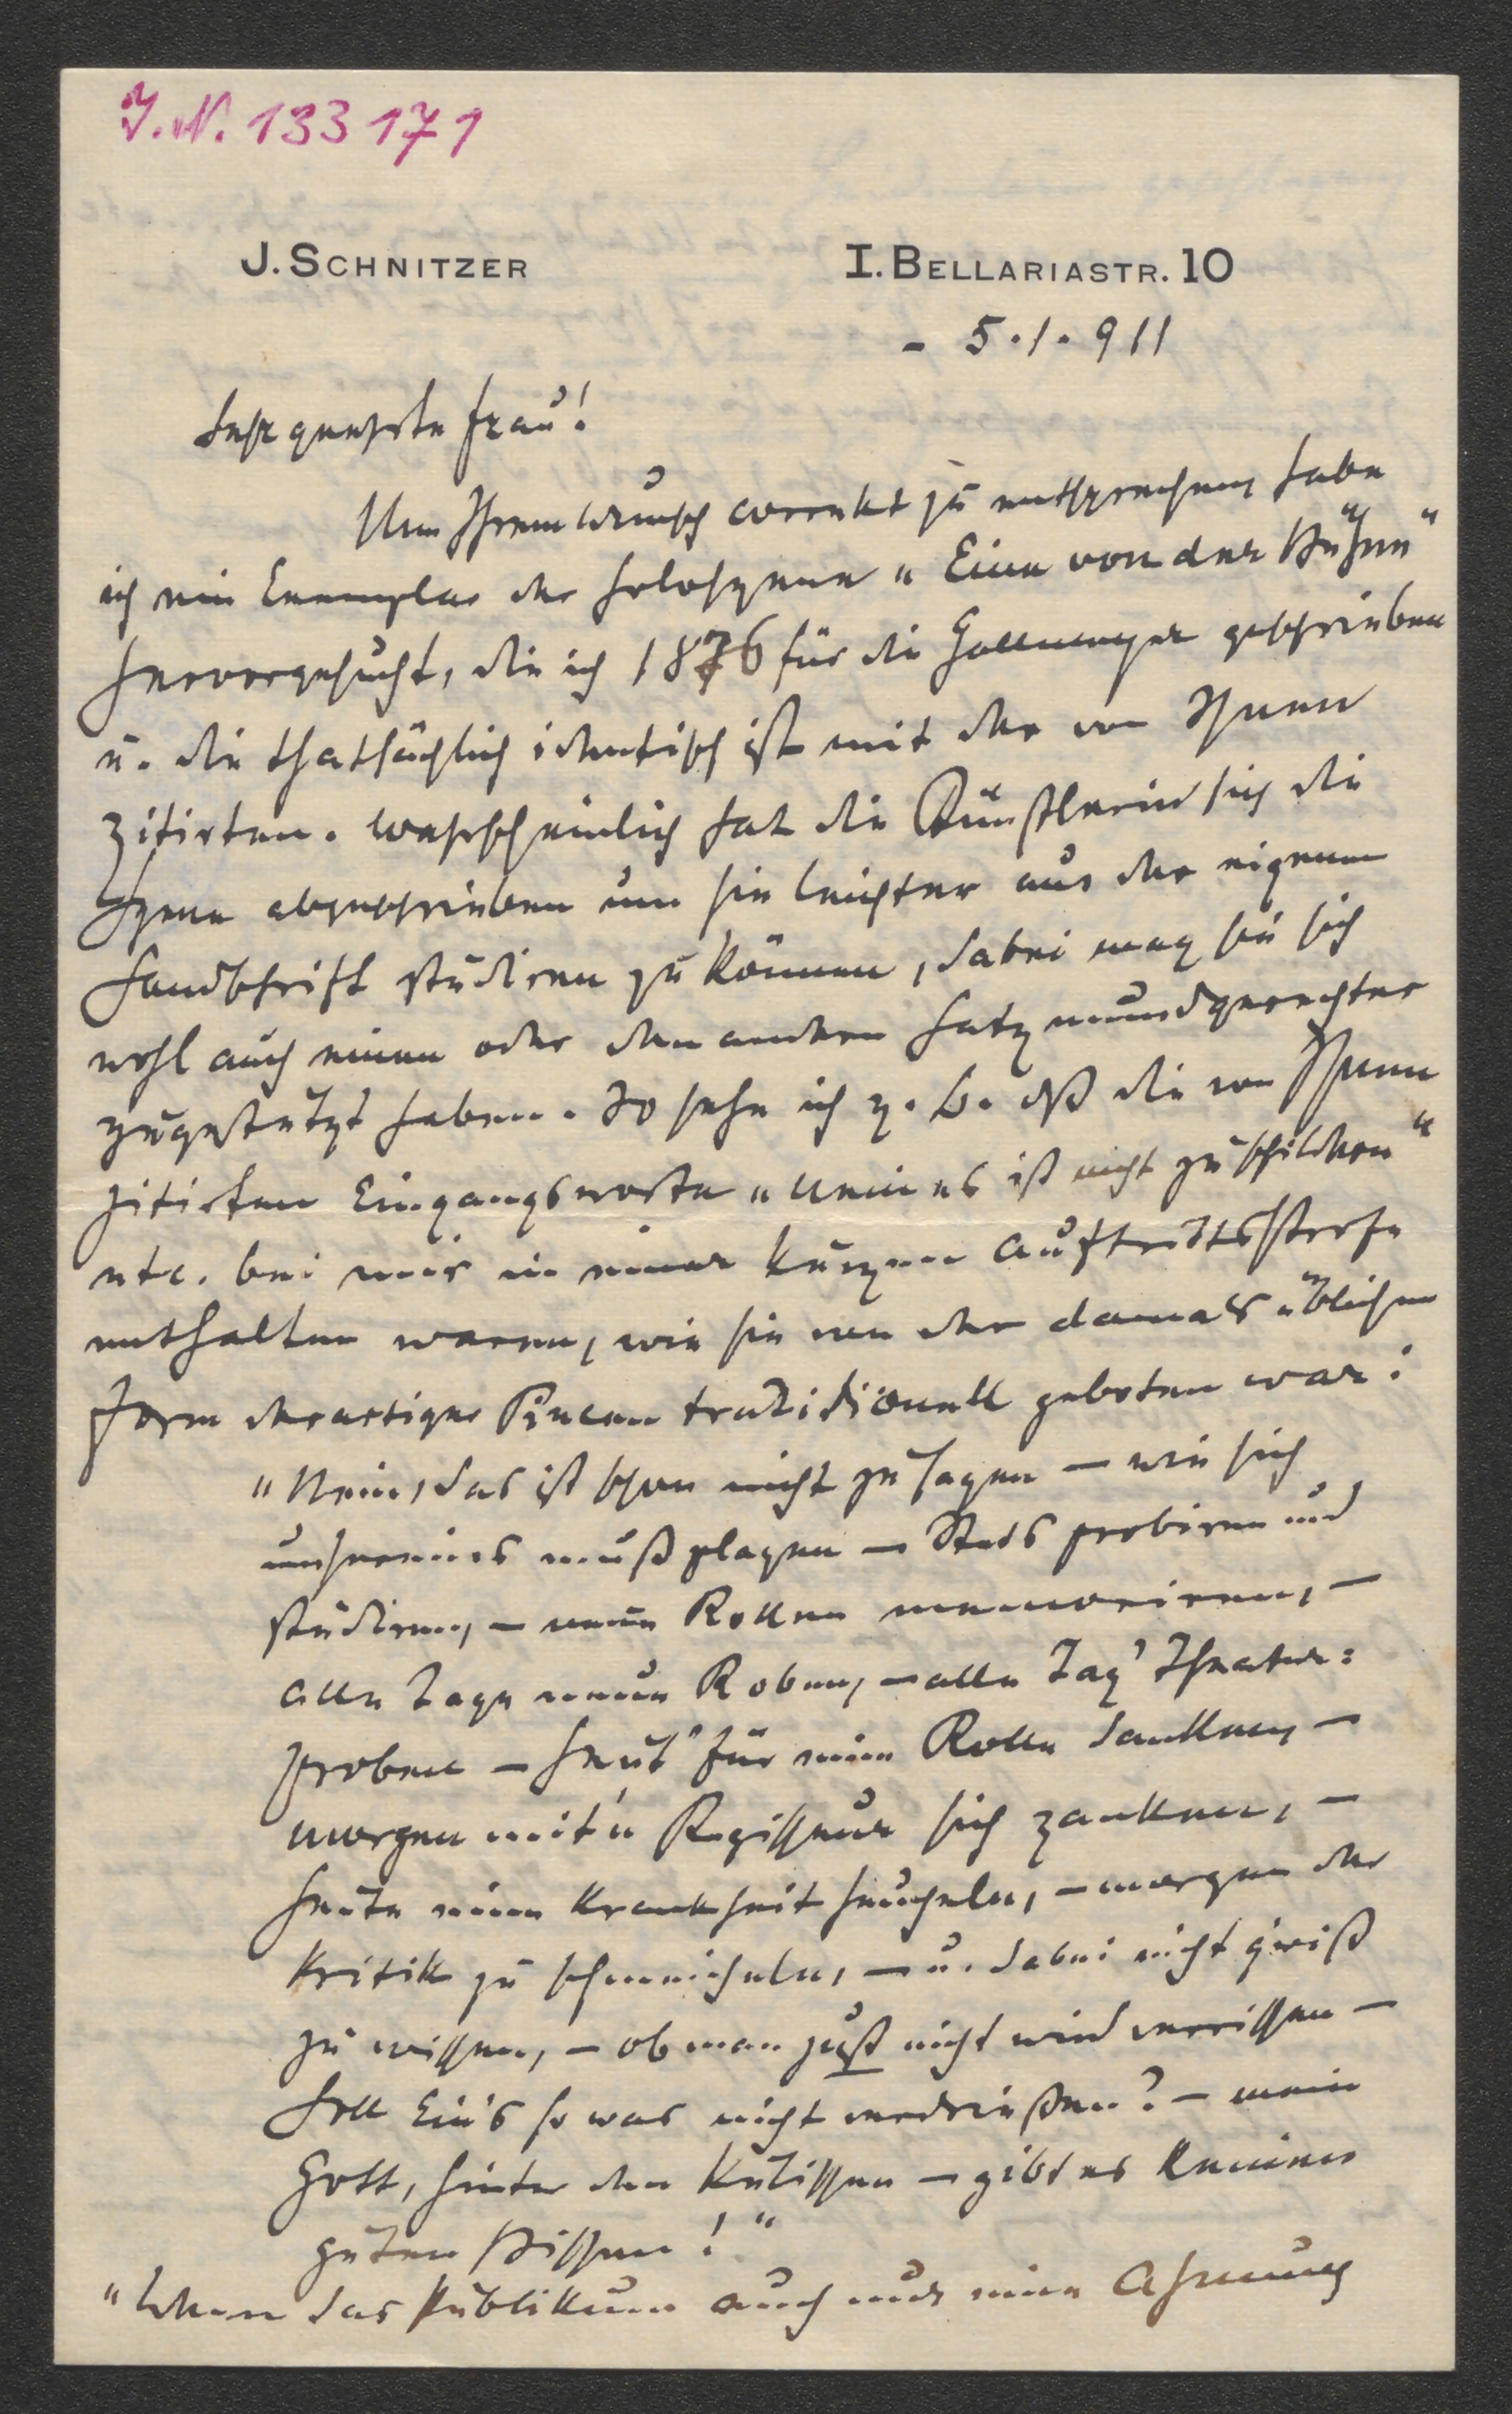 J.N. 133171
J. SCHNITZER
I. BELLARIASTR. 10
- 5.1.911
Sehr geehrte Frau!
Um Ihrem Wunsch correkt zu entsprechen, habe
ich ein Exemplar der Soloszene „Eine von der Bühne“
hervorgesucht, die ich 1876 für die Gallmeyer geschrieben
u. die thatsächlich identisch ist mit der von Ihnen
zitirten. Warscheinlich hat die Künstlerin sich die
Szene abgeschrieben um sie leichter aus der eigenen
Handschrift studiren zu können, dabei mag sie sich
wohl auch einen oder den andern Satz mundgerechter
zugestutzt haben. So sehe ich z. B. dß die von Ihnen
zitirten Eingangsworte „Nein es ist nicht zu schildern“
etc. bei mir in einer kurzen Auftrittsstrofe
enthalten waren, wie sie von der damals üblichen
Form derartiger Piècen tradizionell geboten war:
„Nein, das ist schon nicht zu sagen — wie sich
unsereins muß plagen — Stets probiren und
studiren, — neue Rollen memoriren, —
alle Tage neue Roben, — alle Tag' Theater=
proben — Heut' für eine Rolle danken, —
morgen mit'n Regisseur sich zanken, —
heute eine Krankheit heucheln, — morgen der
Kritik zu schmeicheln, — u. dabei nicht g'wiß
zu wissen, — ob man just nicht wird verrissen —
Soll Ein's so was nicht verdrießen? — mein
Gott, hinter den Kulissen — gibt es keinen
guten Bissen!“
„Wenn das Publikum auch nur eine Ahnung